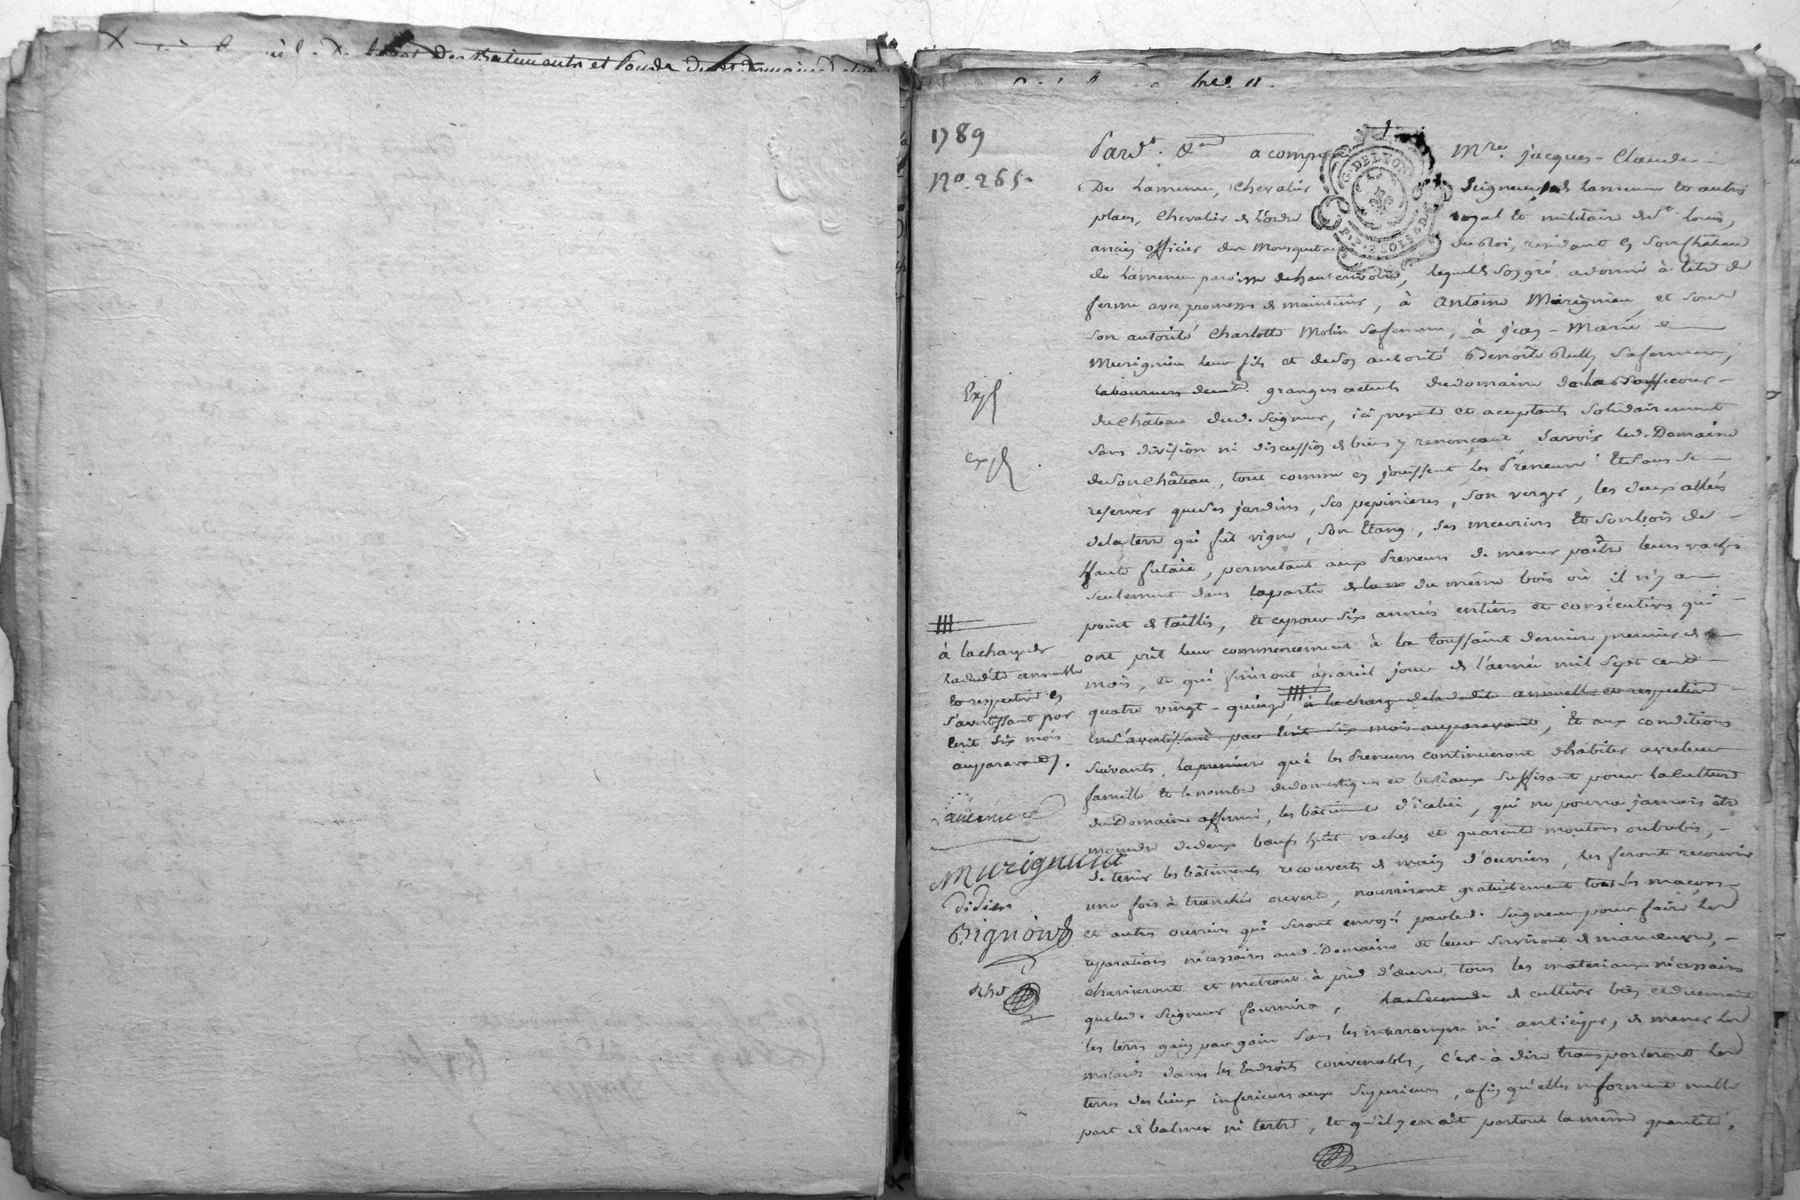 des Batiments et fonds dud. domaine
1789
No. 265.
Pard.t &a a comparu Mre. jacques-Claude
De Lamenue, Chevalier Seigneur de Lamenue et autres
places, Chevalier de L'ordre royal et militaire de st. louis,
ancien officier des Mousquetaires du Roi, residant en son Château
de Lamenue paroisse de hauterivoire, lequel de son gré a donné à titre de
ferme avec promesse de maintenir, à Antoine Murigneux et sous
son autorité Charlotte Molin sa femme, à jean-Marie
Murigneux leur fils et de son autorité Benoite Rully sa femme,
laboureurs grangers actuels du domaine de la Bassecour
du Château dud. Seigneur, ici present et acceptants solidairement
sans division ni discussion de biens y renonçant, savoir led. Domaine
de son Château, tout comme en jouissent les Preneurs et sans se
reserver que ses jardins, ses pepinieres, son verger, les deux allées
de la terre qui fut vigne, son Etang, ses meuriers et son bois de
haute futaie, permetant aux Preneurs de mener paître leurs vaches
seulement dans la partie du même bois où il n'y a
point de taillis, et ce pour six années entieres et consécutives qui
ont prit leur commencement à la toussaint derniere premier de
mois, et qui finiront à pareil jour de l'année mil sept cent
quatre vingt-quinze, à la charge de la dedite annuelle et respective
en s'avertissant par Ecrit six mois auparavant, Et aux conditions
suivants. La premiere que les Preneurs continueront d'habiter avec leur
famille et le nombre de domestiques et bestiaux suffisant pour la culture
du Domaine affermé, les bâtiments d'icelui, qui ne pourra jamais être
moindre de deux boeufs huit vaches et quarente moutons ou brebis,
de tenir les bâtiments recouverts de main d'ouvriers, les feront recouvrir
une fois à tranchée ouverte, nourriront gratuitement tous les maçons
et autres ouvriers qui seront envoyés par led. Seigneur pour faire les
reparations nécessaires aud. Domaine et leur serviront de manoeuvre,
charrieront et metront à pied d'oeuvre tous les materiaux nécessaires
que led. Seigneur fournira, la seconde de cultiver bien et duement
les terres gain par gain sans les interrompre ni anticiper, de mener les
molards dans les Endroits convenables, c'est-à dire transporteront les
terres des lieux inferieurs aux superieurs, afin qu'elles ne forment nulle
part de balmes ni tertre, et qu'il y en ait partout la même quantité,
Exp
exp
à la charge de
la dedite annuelle
et respective en
s'avertissant par
Ecrit six mois
auparavant.
Lamenue
Murigneux
didier
Bignion
G. DE LYON
P.P. 2 SOLS 4 D.